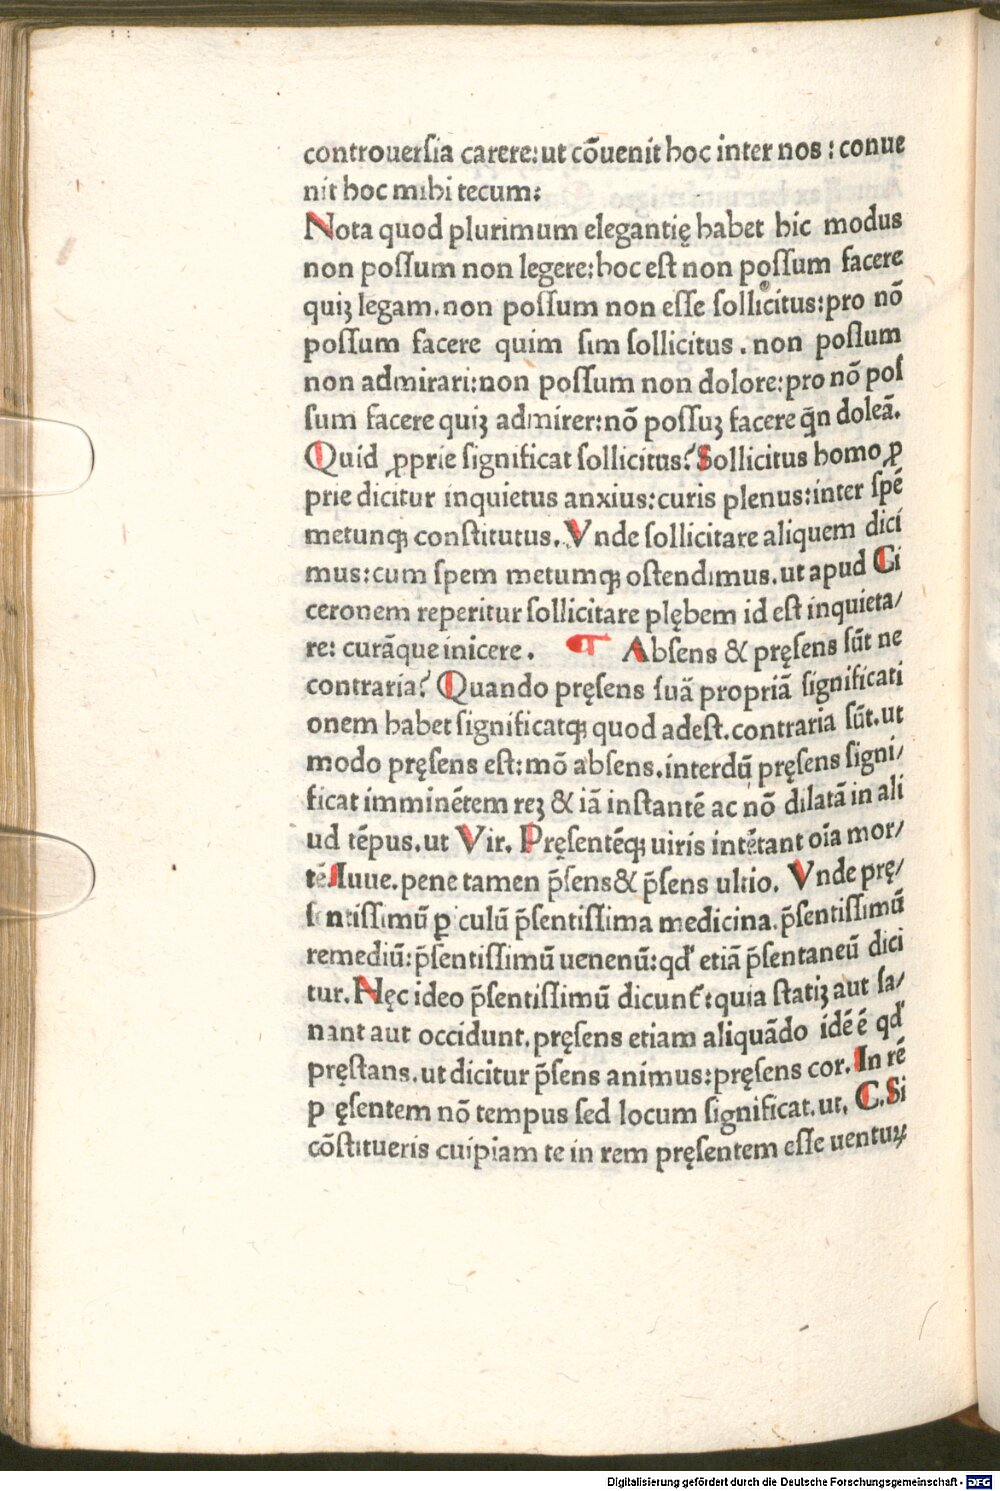 controuerſia carere:ut cõuenit hoc inter nos : conue
nit hoc mihi tecum:
Nota quod plurimum elegantię habet hic modus
non poſſum non legere:hoc eſt non poſſum facere
quiꝫ legam.non poſſum non eſſe ſollicitus:pro nõ
poſſum facere quim ſim ſollicitus . non poſſum
non admirari:non poſſum non dolore:pro nõ poſ
ſum facere quiꝫ admirer:nõ poſſuꝫ facere q̃n doleã.
Quid ꝓprie ſignificat ſollicitus? Sollicitus homo ꝓ
prie dicitur inquietus anxius:curis plenus:inter ſpẽ
metunqꝫ conſtitutus. Vnde ſollicitare aliquem dici
mus:cum ſpem metumqꝫ oſtendimus.ut apud Ci
ceronem reperitur ſollicitare plębem id eſt inquieta/
re: curãque inicere . ¶ Abſens & pręſens ſũt ne
contraria? Quando pręſens ſuã propriã ſignificati
onem habet ſignificatqꝫ quod adeſt.contraria ſũt.ut
modo pręſens eſt:mõ abſens.interdũ pręſens ſigni/
ficat imminẽtem reꝫ & iã inſtantẽ ac nõ dilatã in ali
ud tẽpus.ut Vir. Pręſentẽqꝫ uiris intẽtant oĩa mor/
tẽ Iuue.pene tamen p̃ſens& p̃ſens ultio. Vnde prę/
ſentiſſimũ ꝑ culũ p̃ſentiſſima medicina.p̃ſentiſſimũ
remediũ:p̃ſentiſſimũ uenenũ:qđ etiã p̃ſentaneũ dici
tur. Nęc ideo p̃ſentiſſimũ dicunt᷑:quia ſtatiꝫ aut ſa/
nant aut occidunt.pręſens etiam aliquãdo idẽ ẽ qđ
pręſtans.ut dicitur p̃ſens animus:pręſens cor. In rẽ
p ęſentem nõ tempus ſed locum ſignificat.ut. C. Si
cõſtitueris cuipiam te in rem pręſentem eſſe uentuꝝ
Digitalisierung gefördert durch die Deutsche Forschungsgemeinschaft - DFG